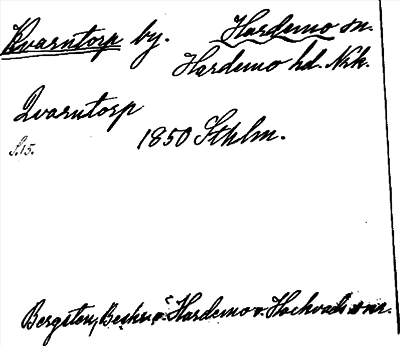 Kvarntorp by. Hardemo sn.
Hardemo hd. Nrk.
Qvarntorp
S. 15. 1850 Sthlm.
Bergsten, Beskr. ö. Hardemo o. Hackvads snr.